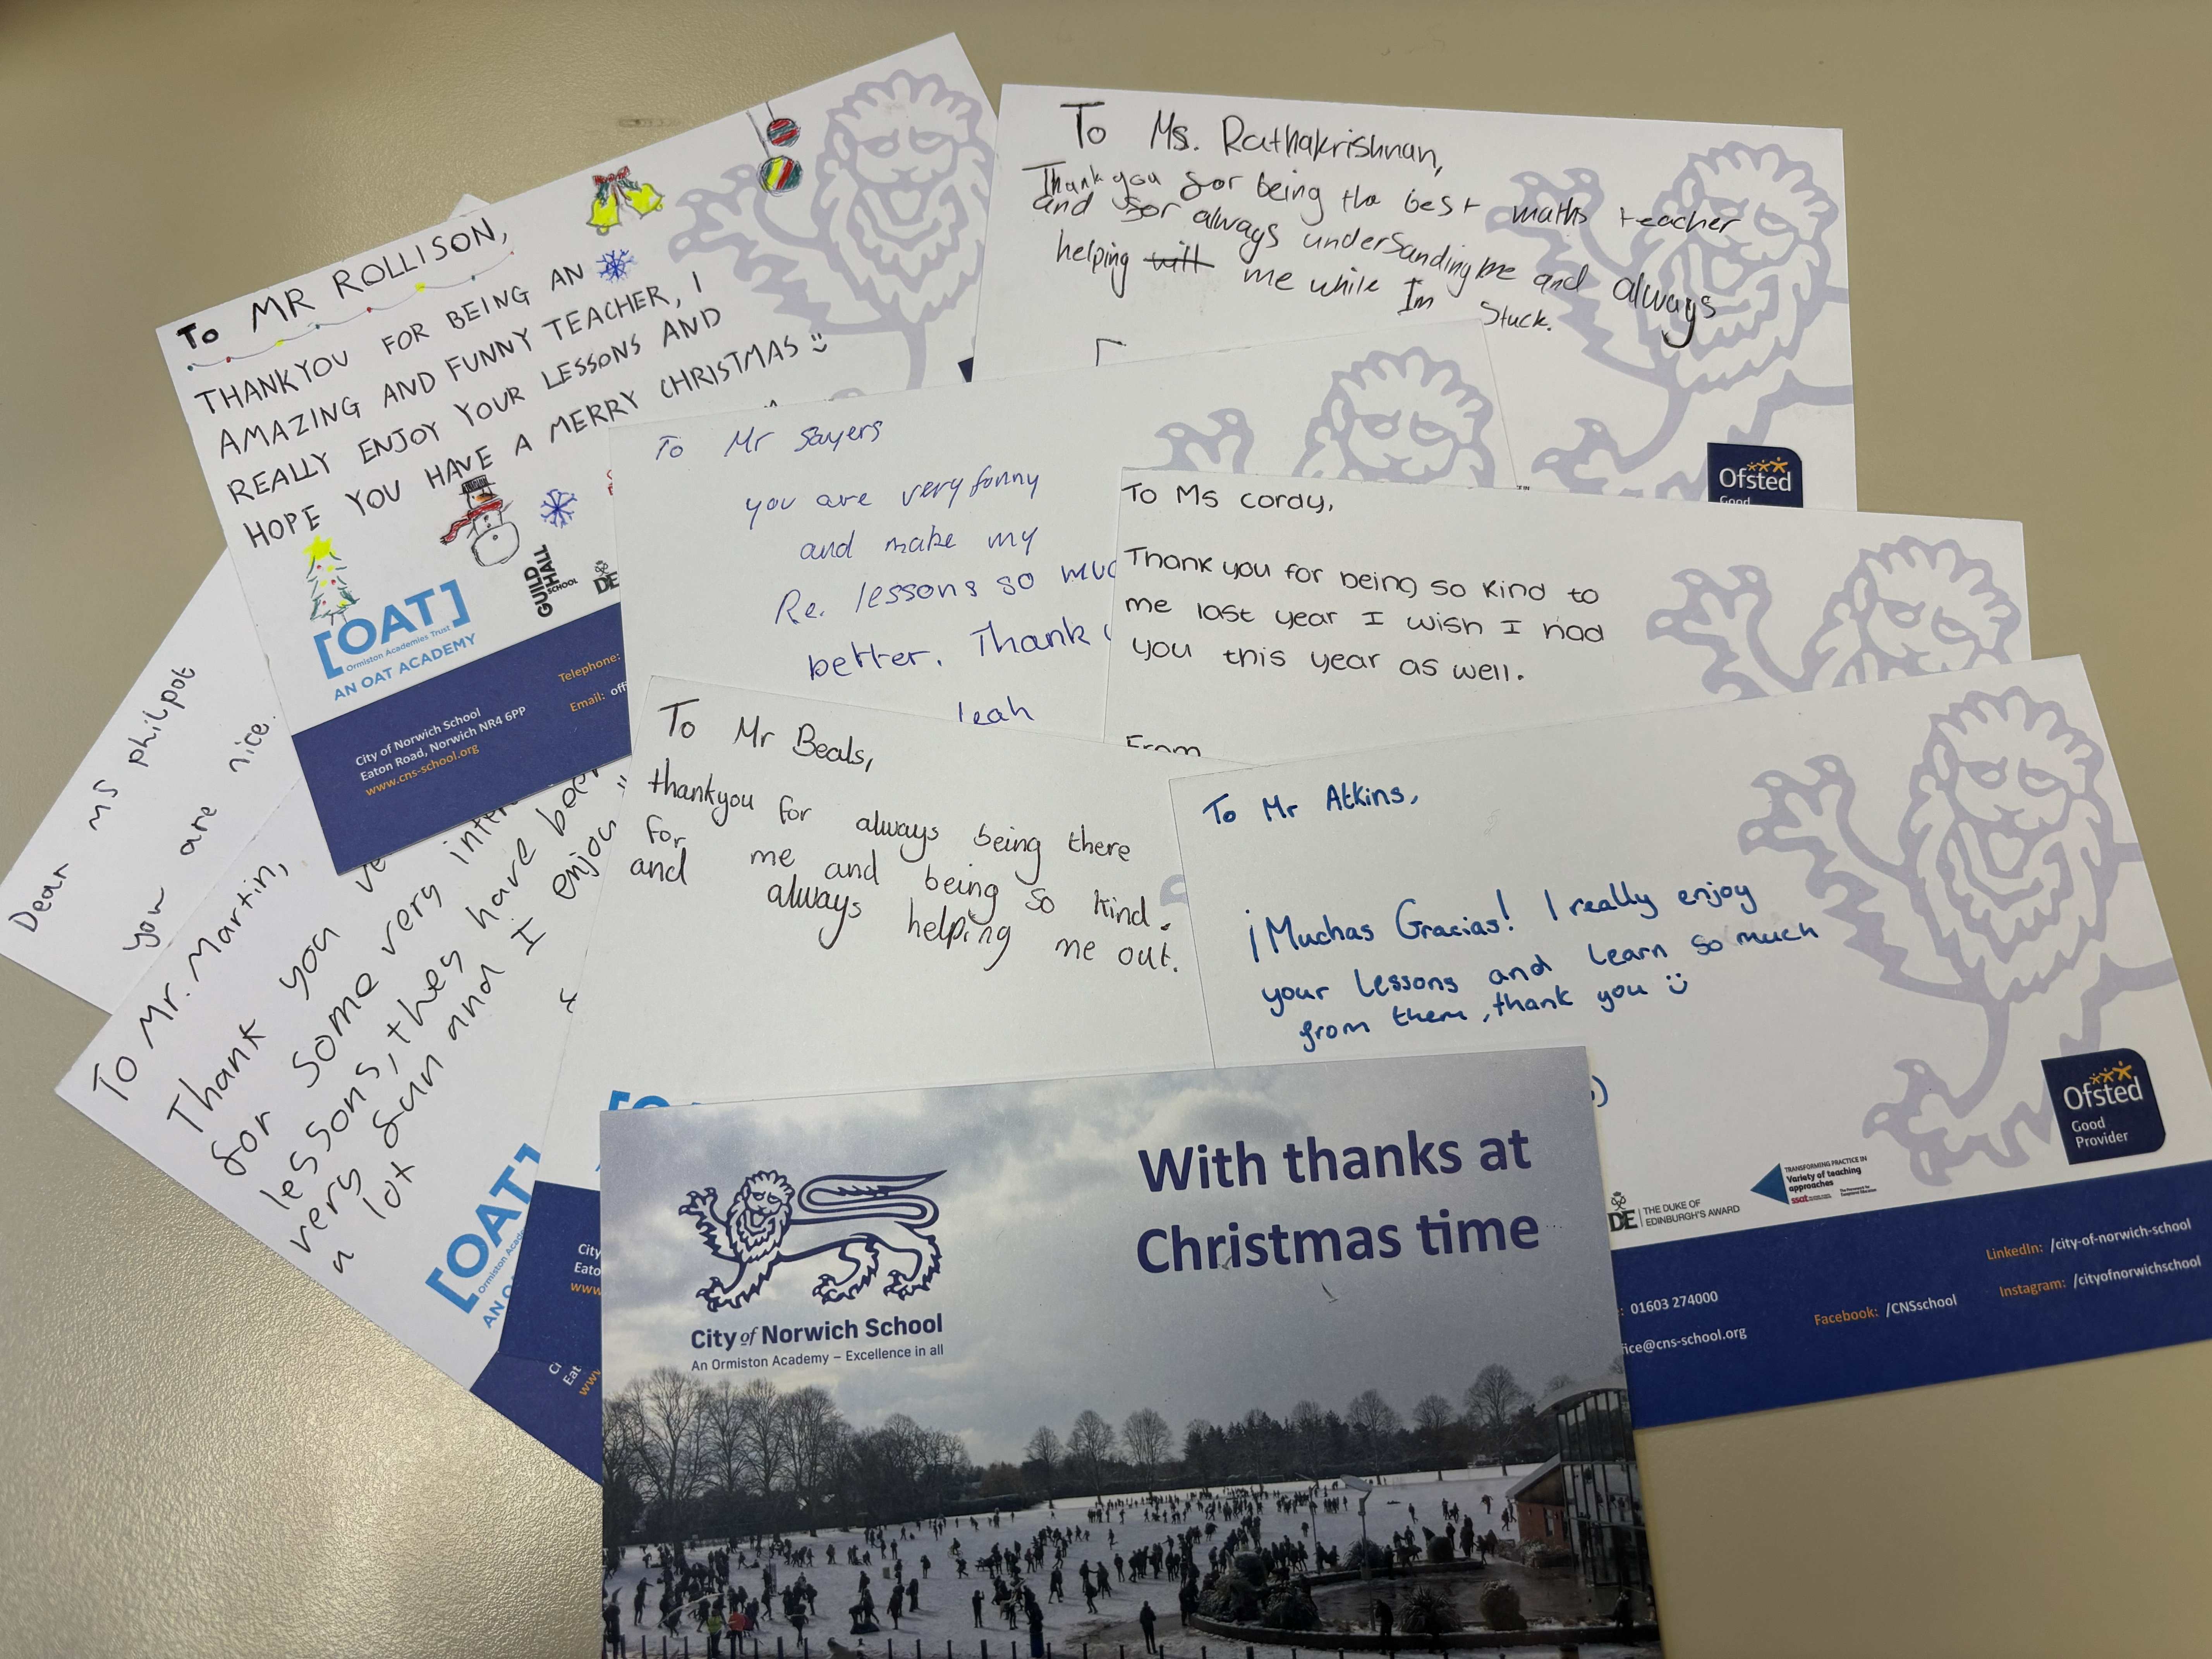 To MR ROLLISON,
THANKYOU FOR BEING AN
AMAZING AND FUNNY TEACHER, I
REALLY ENJOY YOUR LESSONS AND
HOPE YOU HAVE A MERRY CHRISTMAS
[OAT]
Ormiston Academies Trust
AN OAT ACADEMY
GUILD
HALL
SCHOOL
DE
City of Norwich School
Eaton Road, Norwich NR4 6PP
www.cns-school.org
Telephone:
Email:
To Ms. Rathakrishnan,
Thank you for being the best maths teacher
and for always undersanding me and always
helping me while Im Stuck.
Ofsted
Good
To Mr Sayers
you are very funny
and make my
Re. lessons so
better. Thank
leah
To Ms cordy,
Thank you for being so kind to
me last year I wish I had
you this year as well.
From
Dear MS philpot
you are nice.
To Mr. Martin,
Thank you
for some very
lessons, they have
very fun and I enjoy
a lot
[OAT]
To Mr Beals,
thankyou for always being there
for me and being so kind.
and always helping me out.
To Mr Atkins,
¡Muchas Gracias! I really enjoy
your lessons and learn so much
from them, thank you
Ofsted
Good
Provider
DE THE DUKE OF
EDINBURGH'S AWARD
TRANSFORMING PRACTICE IN
Variety of teaching
approaches
ssat
01603 274000
ice@cns-school.org
Facebook: /CNSschool
LinkedIn: /city-of-norwich-school
Instagram: /cityofnorwichschool
With thanks at
Christmas time
City of Norwich School
An Ormiston Academy – Excellence in all